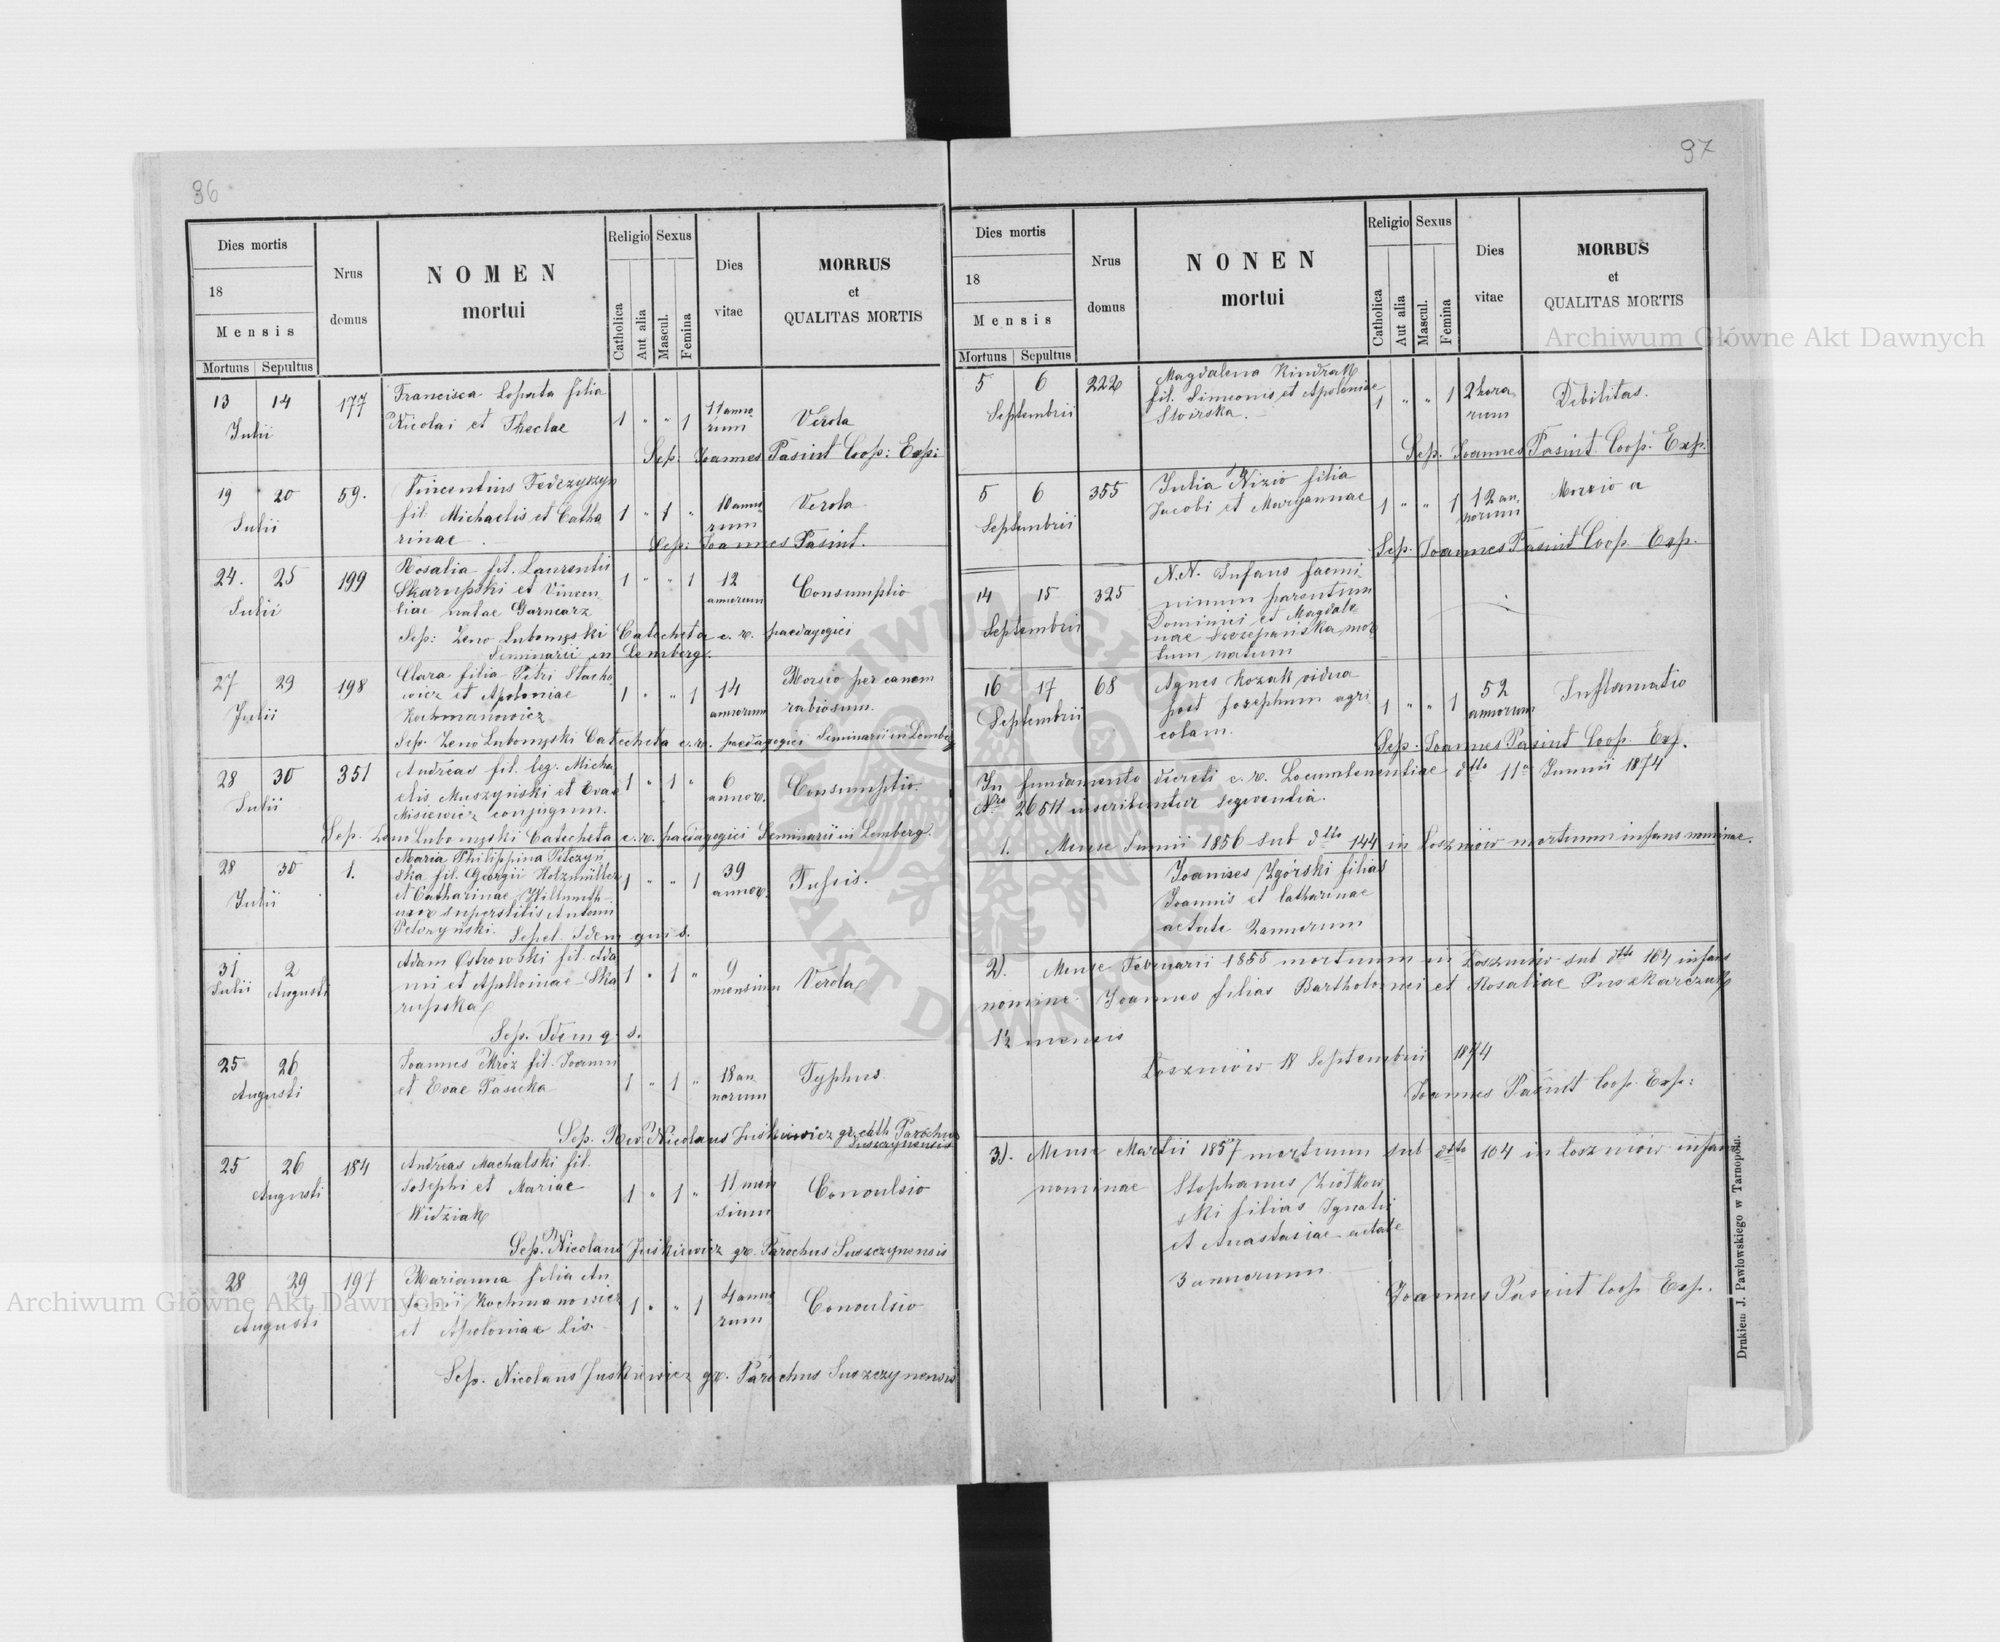 96
Dies mortis
18
Mensis
Mortuus Sepultus
Nrus
domus
NOMEN
mortui
Religio Sexus
Catholica
Aut alia
Mascul.
Femina
Dies
vitae
MORRUS
et
QUALITAS MORTIS
13 14 177 Francisca Lopata filia
Julii Nicolai et Theclae 1 " " 1 11 anno
rum Verola
Sep: Joannes Pasiut Coop: Exp:
19 20 59. Vincentius Fedczyszyn
Julii fil. Michaelis et Catha 1 " 1 " 10 anno
rinae rum Verola
Sep: Joannes Pasiut.
24. 25 199 Rosalia fil. Laurentii
Julii Skarupski et Vincen 1 " " 1 12
tiae natae Garncarz annorum Consumptio
Sep: Zeno Lubomęski Catecheta c. r. paedagogici
Seminarii in Lemberg.
27 29 198 Clara filia Petri Stacho
Julii wicz et Apoloniae 1 " " 1 14
Kochmanowicz annorum Morsio per canem
rabiosum.
Sep. Zeno Lubomęski Catecheta c. r. paedagogici Seminarii in Lemberg
28 30 351 Andreas fil. leg. Micha
Julii elis Muszyński et Evae 1 " 1 " 6
Misiewicz conjugum. annor. Consumptio.
Sep. Zeno Lubomęski Catecheta c. r. paedagogici Seminarii in Lemberg.
28 30 1. Maria Philippina Pelczyń
Julii ska fil. Georgii Holzmüller 1 " " 1 39
et Catharinae annor. Tussis.
uxor superstitis Antoni
Pelczyński. Sepel. Idem qui s.
31 2 Adam Ostrowski fil. Ada
Julii Augusti mi et Apolloniae Ska 1 " 1 " 9
rupska mensium Verola
Sep. Idem q. s.
25 26 Joannes Mróz fil. Joann
Augusti et Evae Pasieka 1 " 1 " 18 an
norum Typhus
Sep. Rev. Nicolaus Juśkiewicz gr. cath. Parochus
Suszczynensis
25 26 184 Andreas Machalski fil.
Augusti Josephi et Mariae 1 " 1 " 11 men
Widziak sium Convulsio
Sep. Nicolaus Juśkiewicz gr. Parochus Suszczynensis
28 29 197 Marianna filia An
Augusti tonii Kochmanowicz 1 " " 1 4 anno
et Apoloniae Lis. rum Convulsio
Sep. Nicolaus Juśkiewicz gr. Parochus Suszczynensis
97
Dies mortis
18
Mensis
Mortuus Sepultus
Nrus
domus
NONEN
mortui
Religio Sexus
Catholica
Aut alia
Mascul.
Femina
Dies
vitae
MORBUS
et
QUALITAS MORTIS
5 6 222 Magdalena Kindrak
Septembrii fil. Simeonis et Apoloniae 1 " " 1 2 hora
Swirska. rum Debilitas.
Sep. Joannes Pasiut Coop. Exp:
5 6 355 Julia Nizio filia
Septembrii Jacobi et Maryannae 1 " " 1 12 an
norum Morsio a
Sep. Joannes Pasiut Coop. Exp.
14 15 325 N.N. Infans faemi
Septembrii ninum parentum
Dominici et Magdale
nae Szczepańska mor
tum natum
16 17 68 Agnes Kozak vidua
Septembrii post Josephum agri 1 " " 1 52
colam. annorum Inflamatio
Sep. Joannes Pasiut Coop. Exp.
In fundamento decreti c. r. Locumtenentiae dtto 11a Junii 1874
Nro 26511 inscribuntur seqventia.
1. Mense Junii 1856 sub dtto 144 in Łoszniów mortuum infans nominae.
Joannes Zgórski filias
Joannis et Catharinae
aetate 2 annorum
2). Mense Februarii 1855 mortuum in Łoszniów sub dtto 164 infans
nomine Joannes filias Bartholomei et Rosaliae Puszkarczuk
1½ mensis
Łoszniów 18 Septembrii 1874
Joannes Pasiut Coop. Exp:
3). Mense Martii 1857 mortuum sub dtto 104 in Łoszniów infans
nominae Stephanus Ziółkow
ski filias Ignatii
et Anastasiae aetate
3 annorum.
Joannes Pasiut Coop. Exp.
Drukiem J. Pawłowskiego w Tarnopolu.
Archiwum Główne Akt Dawnych
Archiwum Główne Akt Dawnych
ARCHIWUM GŁÓWNE AKT DAWNYCH